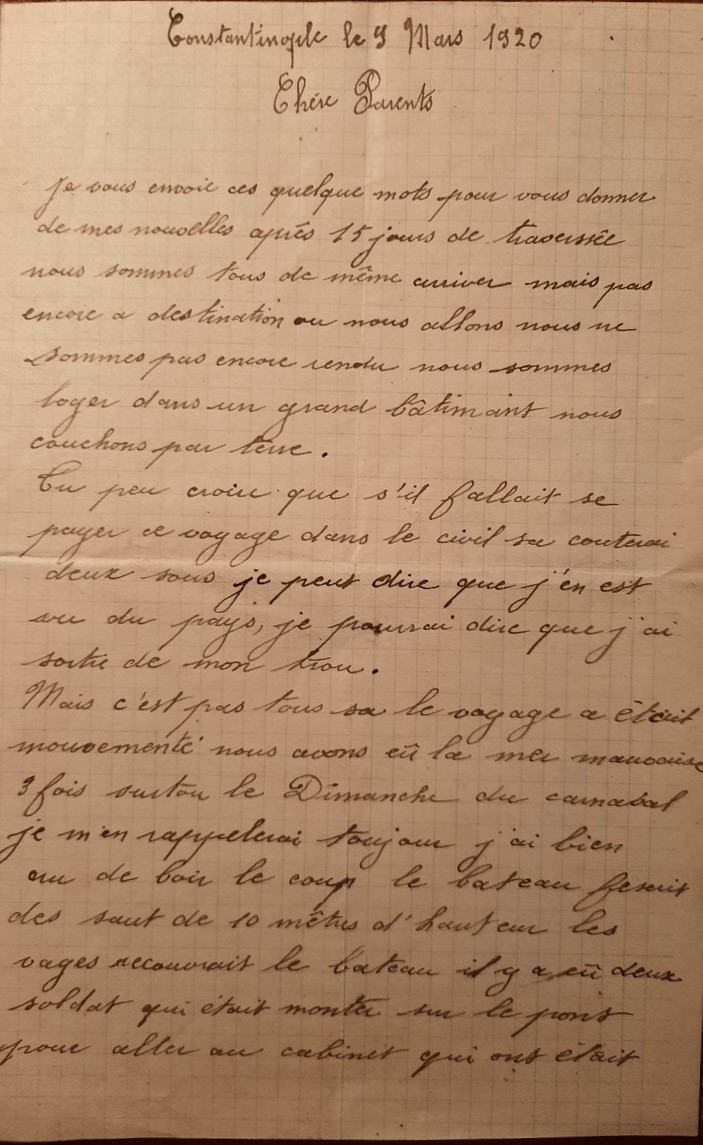 Constantinople le 9 Mars 1920
Chére Parents
Je vous envoie ces quelque mots pour vous donner
de mes nouvelles aprés 15 jours de traversée
nous sommes tous de même arriver mais pas
encore a destination ou nous allons nous ne
sommes pas encore rendu nous sommes
loger dans un grand bâtimant nous
couchons par terre.
Tu peu croire que s'il fallait se
payer ce voyage dans le civil sa couterai
deux sous je peut dire que j'en est
vu du pays, je pourrai dire que j'ai
sortie de mon trou.
Mais c'est pas tous sa le voyage a était
mouvementé nous avons eû la mer mauvaise
3 fois surtou le Dimanche du carnaval
je m'en rappelerai toujour j'ai bien
cru de boir le coup le bateau fesait
des saut de 10 mêtres d'hauteur les
vages recouvrait le bateau il y a eû deux
soldat qui était monter sur le pont
pour aller au cabinet qui ont était